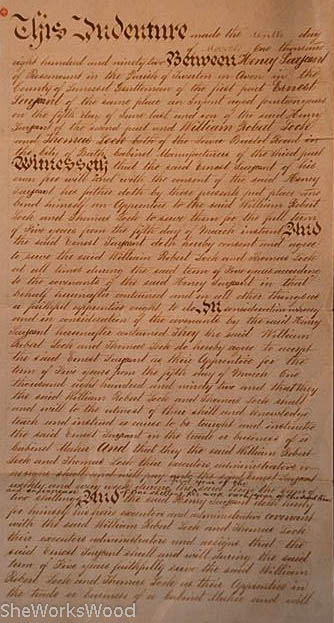 This Indenture made the tenth day
of March One thousand
eight hundred and ninety two Between Henry Sargant
of Rosemount in the Parish of Twerton on Avon in the
County of Somerset Gentleman of the first part Ernest
Sargant of the same place an Infant aged
on the fifth day of June last and son of the said Henry
Sargant of the second part and William Robert Lock
and Thomas Lock both of the same
Cabinet Manufacturers of the third part
Witnesseth that the said Ernest Sargant of his
own free will and with the consent of the said Henry
Sargant has put and with by these presents and place and
bind himself an Apprentice to the said William Robert
Lock and Thomas Lock to serve them for the full term
of Five years from the fifth day of March instant And
the said Ernest Sargant doth hereby consent and agree
to serve the said William Robert Lock and Thomas Lock
at all times during the said term of Five years according
to the covenants of the said Henry Sargant in that
behalf hereinafter contained and in all other things as
a faithful apprentice ought to do In consideration
and in consideration of the covenants by the said Henry
Sargant hereinafter contained They the said William
Robert Lock and Thomas Lock do hereby agree to accept
the said Ernest Sargant as their Apprentice for the
term of Five years from the fifth day of March One
thousand eight hundred and ninety two and that they
the said William Robert Lock and Thomas Lock shall
and will to the utmost of their skill and knowledge
teach and instruct or cause to be taught and instructed
the said Ernest Sargant in the trade or business of a
Cabinet Maker And that they the said William Robert
Lock and Thomas Lock their executors administrators or
assigns shall and will pay unto the said Ernest Sargant
weekly and every week
two shillings And the said Henry Sargant doth hereby
for himself his heirs executors and administrators covenant
with the said William Robert Lock and Thomas Lock
their executors administrators and assigns that the
said Ernest Sargant shall and will during the said
term of Five years faithfully serve the said William
Robert Lock and Thomas Lock as their Apprentice in
the trade or business of a Cabinet Maker and will
SheWorksWood